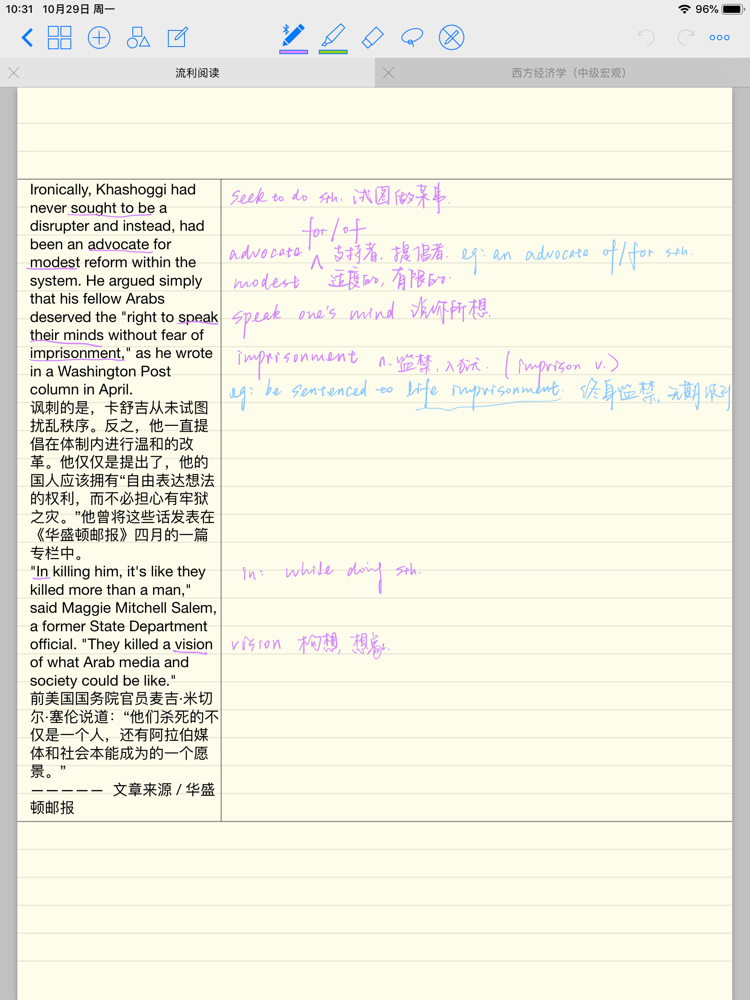 10:31 10月29日 周一
96%
流利阅读
西方经济学（中级宏观）
Ironically, Khashoggi had
never sought to be a
disrupter and instead, had
been an advocate for
modest reform within the
system. He argued simply
that his fellow Arabs
deserved the "right to speak
their minds without fear of
imprisonment," as he wrote
in a Washington Post
column in April.
讽刺的是，卡舒吉从未试图
扰乱秩序。反之，他一直提
倡在体制内进行温和的改
革。他仅仅是提出了，他的
国人应该拥有“自由表达想法
的权利，而不必担心有牢狱
之灾。”他曾将这些话发表在
《华盛顿邮报》四月的一篇
专栏中。
"In killing him, it's like they
killed more than a man,"
said Maggie Mitchell Salem,
a former State Department
official. "They killed a vision
of what Arab media and
society could be like."
前美国国务院官员麦吉·米切
尔·塞伦说道：“他们杀死的不
仅是一个人，还有阿拉伯媒
体和社会本能成为的一个愿
景。”
————— 文章来源 / 华盛
顿邮报
seek to do sth. 试图做某事.
for/of
advocate ∧ 支持者. 提倡者. eg: an advocate of/for sth.
modest 适度的, 有限的.
speak one's mind 说你所想.
imprisonment n. 监禁, 入狱. (imprison v.)
eg: be sentenced to life imprisonment. 终身监禁, 无期徒刑
in: while doing sth.
vision 构想, 想象.